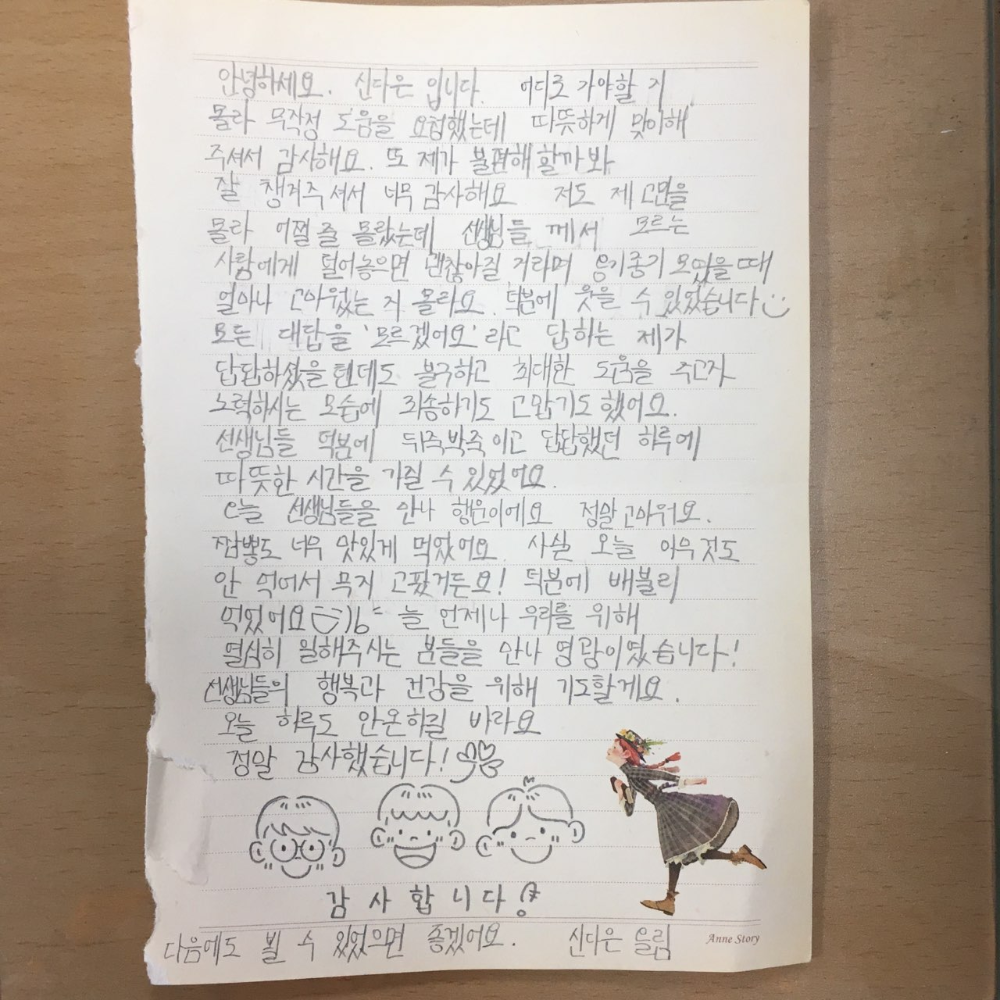 안녕하세요. 신다은 입니다. 어디로 가야할 지
몰라 무작정 도움을 요청했는데 따뜻하게 맞이해
주셔서 감사해요. 또 제가 불편해 할까봐
잘 챙겨주셔서 너무 감사해요 저도 제 고민을
몰라 어쩔 줄 몰랐는데 선생님들 께서 모르는
사람에게 털어놓으면 괜찮아질 거라며 옹기종기 모였을 때
얼마나 고마웠는 지 몰라요. 덕분에 웃을 수 있었습니다
모든 대답을 '모르겠어요' 라고 답하는 제가
답답하셨을텐데도 불구하고 최대한 도움을 주고자
노력하시는 모습에 죄송하기도 고맙기도 했어요.
선생님들 덕분에 뒤죽박죽이고 답답했던 하루에
따뜻한 시간을 가질 수 있었어요.
오늘 선생님들을 만나 행운이에요 정말 고마워요.
짬뽕도 너무 맛있게 먹었어요. 사실 오늘 아무것도
안 먹어서 무지 고팠거든요! 덕분에 배불리
먹었어요 늘 언제나 우리를 위해
열심히 일해주시는 분들을 만나 영광이였습니다!
선생님들의 행복과 건강을 위해 기도할게요.
오늘 하루도 안온하길 바라요
정말 감사했습니다!
감사합니다!
다음에도 뵐 수 있었으면 좋겠어요. 신다은 올림
Anne Story